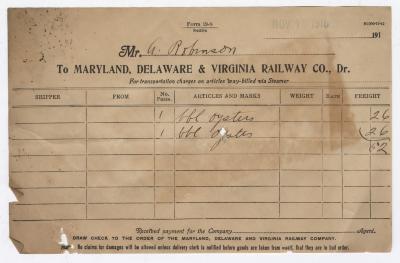 Form 19-S
NOV 1916
191
Mr. A. Robinson
To MARYLAND, DELAWARE & VIRGINIA RAILWAY CO., Dr.
For transportation charges on articles way-billed via Steamer
SHIPPER FROM No. Pcses. ARTICLES AND MARKS WEIGHT RATE FREIGHT
1 bbl oysters 26
1 bbl oysters 26
52
Received payment for the Company Agent.
DRAW CHECK TO THE ORDER OF THE MARYLAND, DELAWARE AND VIRGINIA RAILWAY COMPANY.
No claims for damages will be allowed unless delivery clerk is notified before goods are taken from wharf, that they are in bad order.